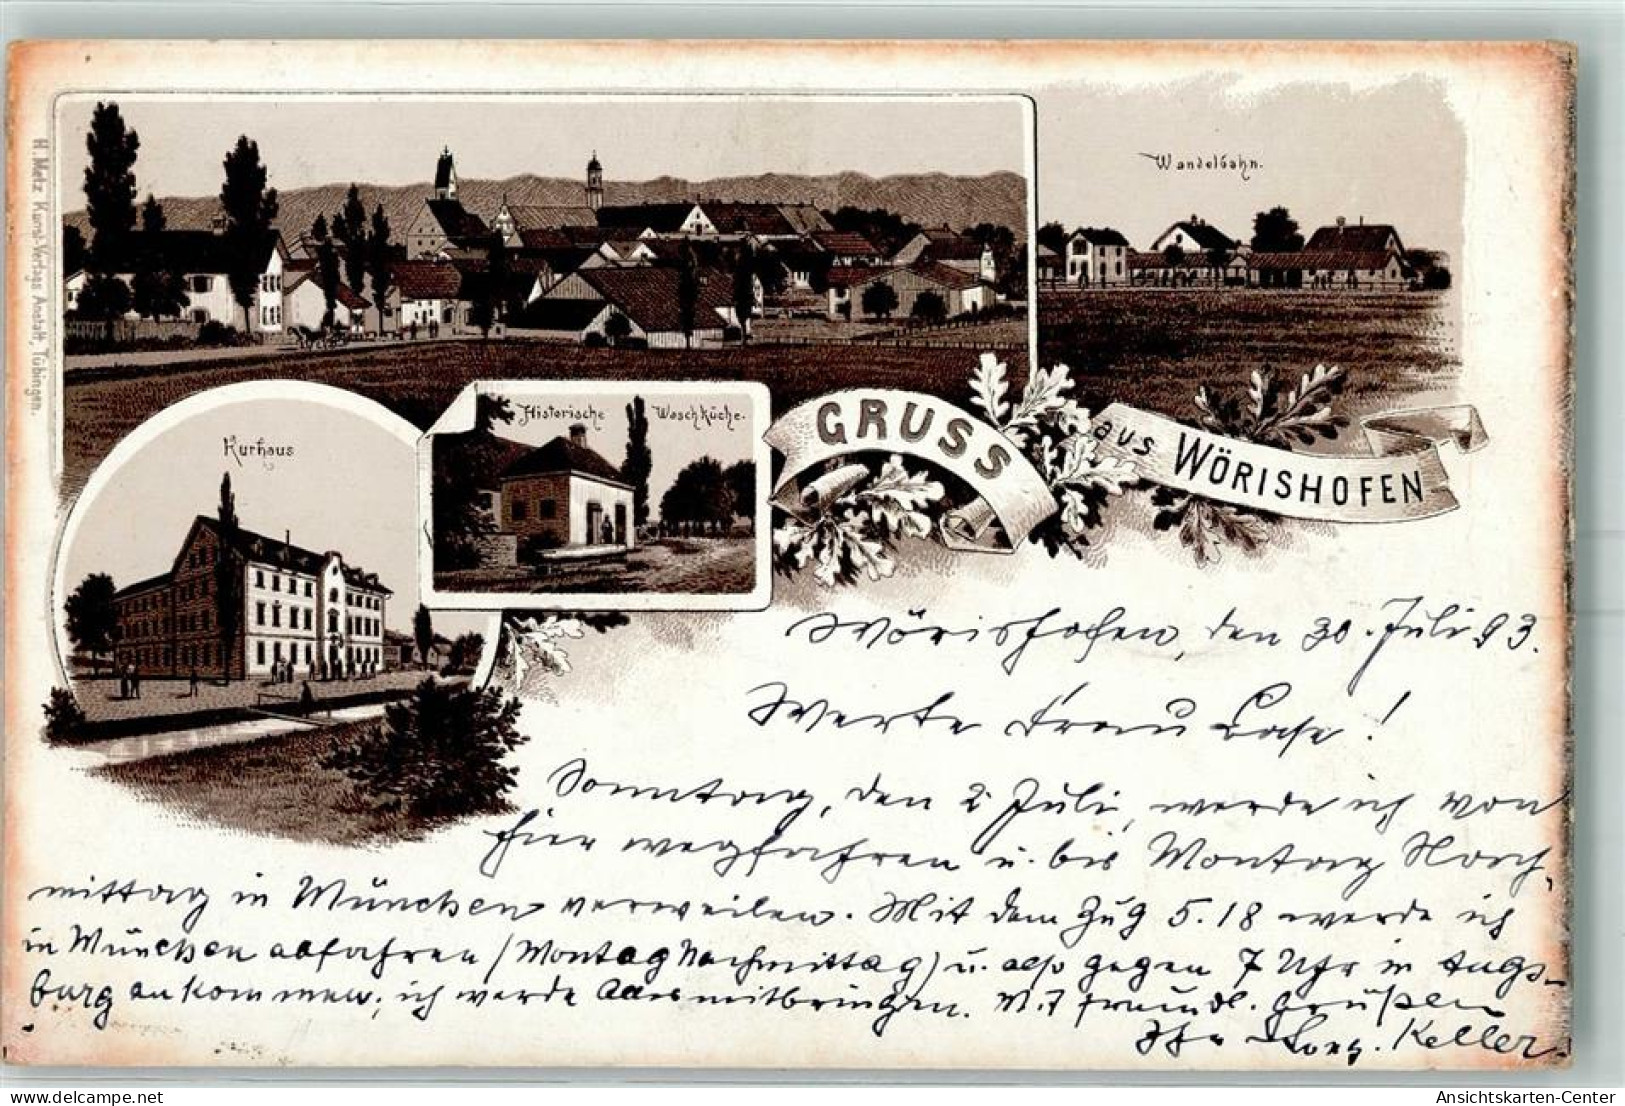 Wandelbahn.
H. Metz Kunst-Verlags Anstalt, Tübingen.
Kurhaus
Historische Waschküche.
GRUSS
aus WÖRISHOFEN
Wörishofen, den 30. Juli 93.
Werte Frau
Sonntag, den 2 Juli, werde ich von
hier wegfahren u. bis Montag Nach-
mittag in München verweilen. Mit dem Zug 5.18 werde ich
in München abfahren (Montag Nachmittag) u. also gegen 7 Uhr in Augs-
burg ankommen; ich werde mitbringen. Mit freundl. Grüßen
Ihr Keller.
AnsichtsKarten-Center
delcampe.net